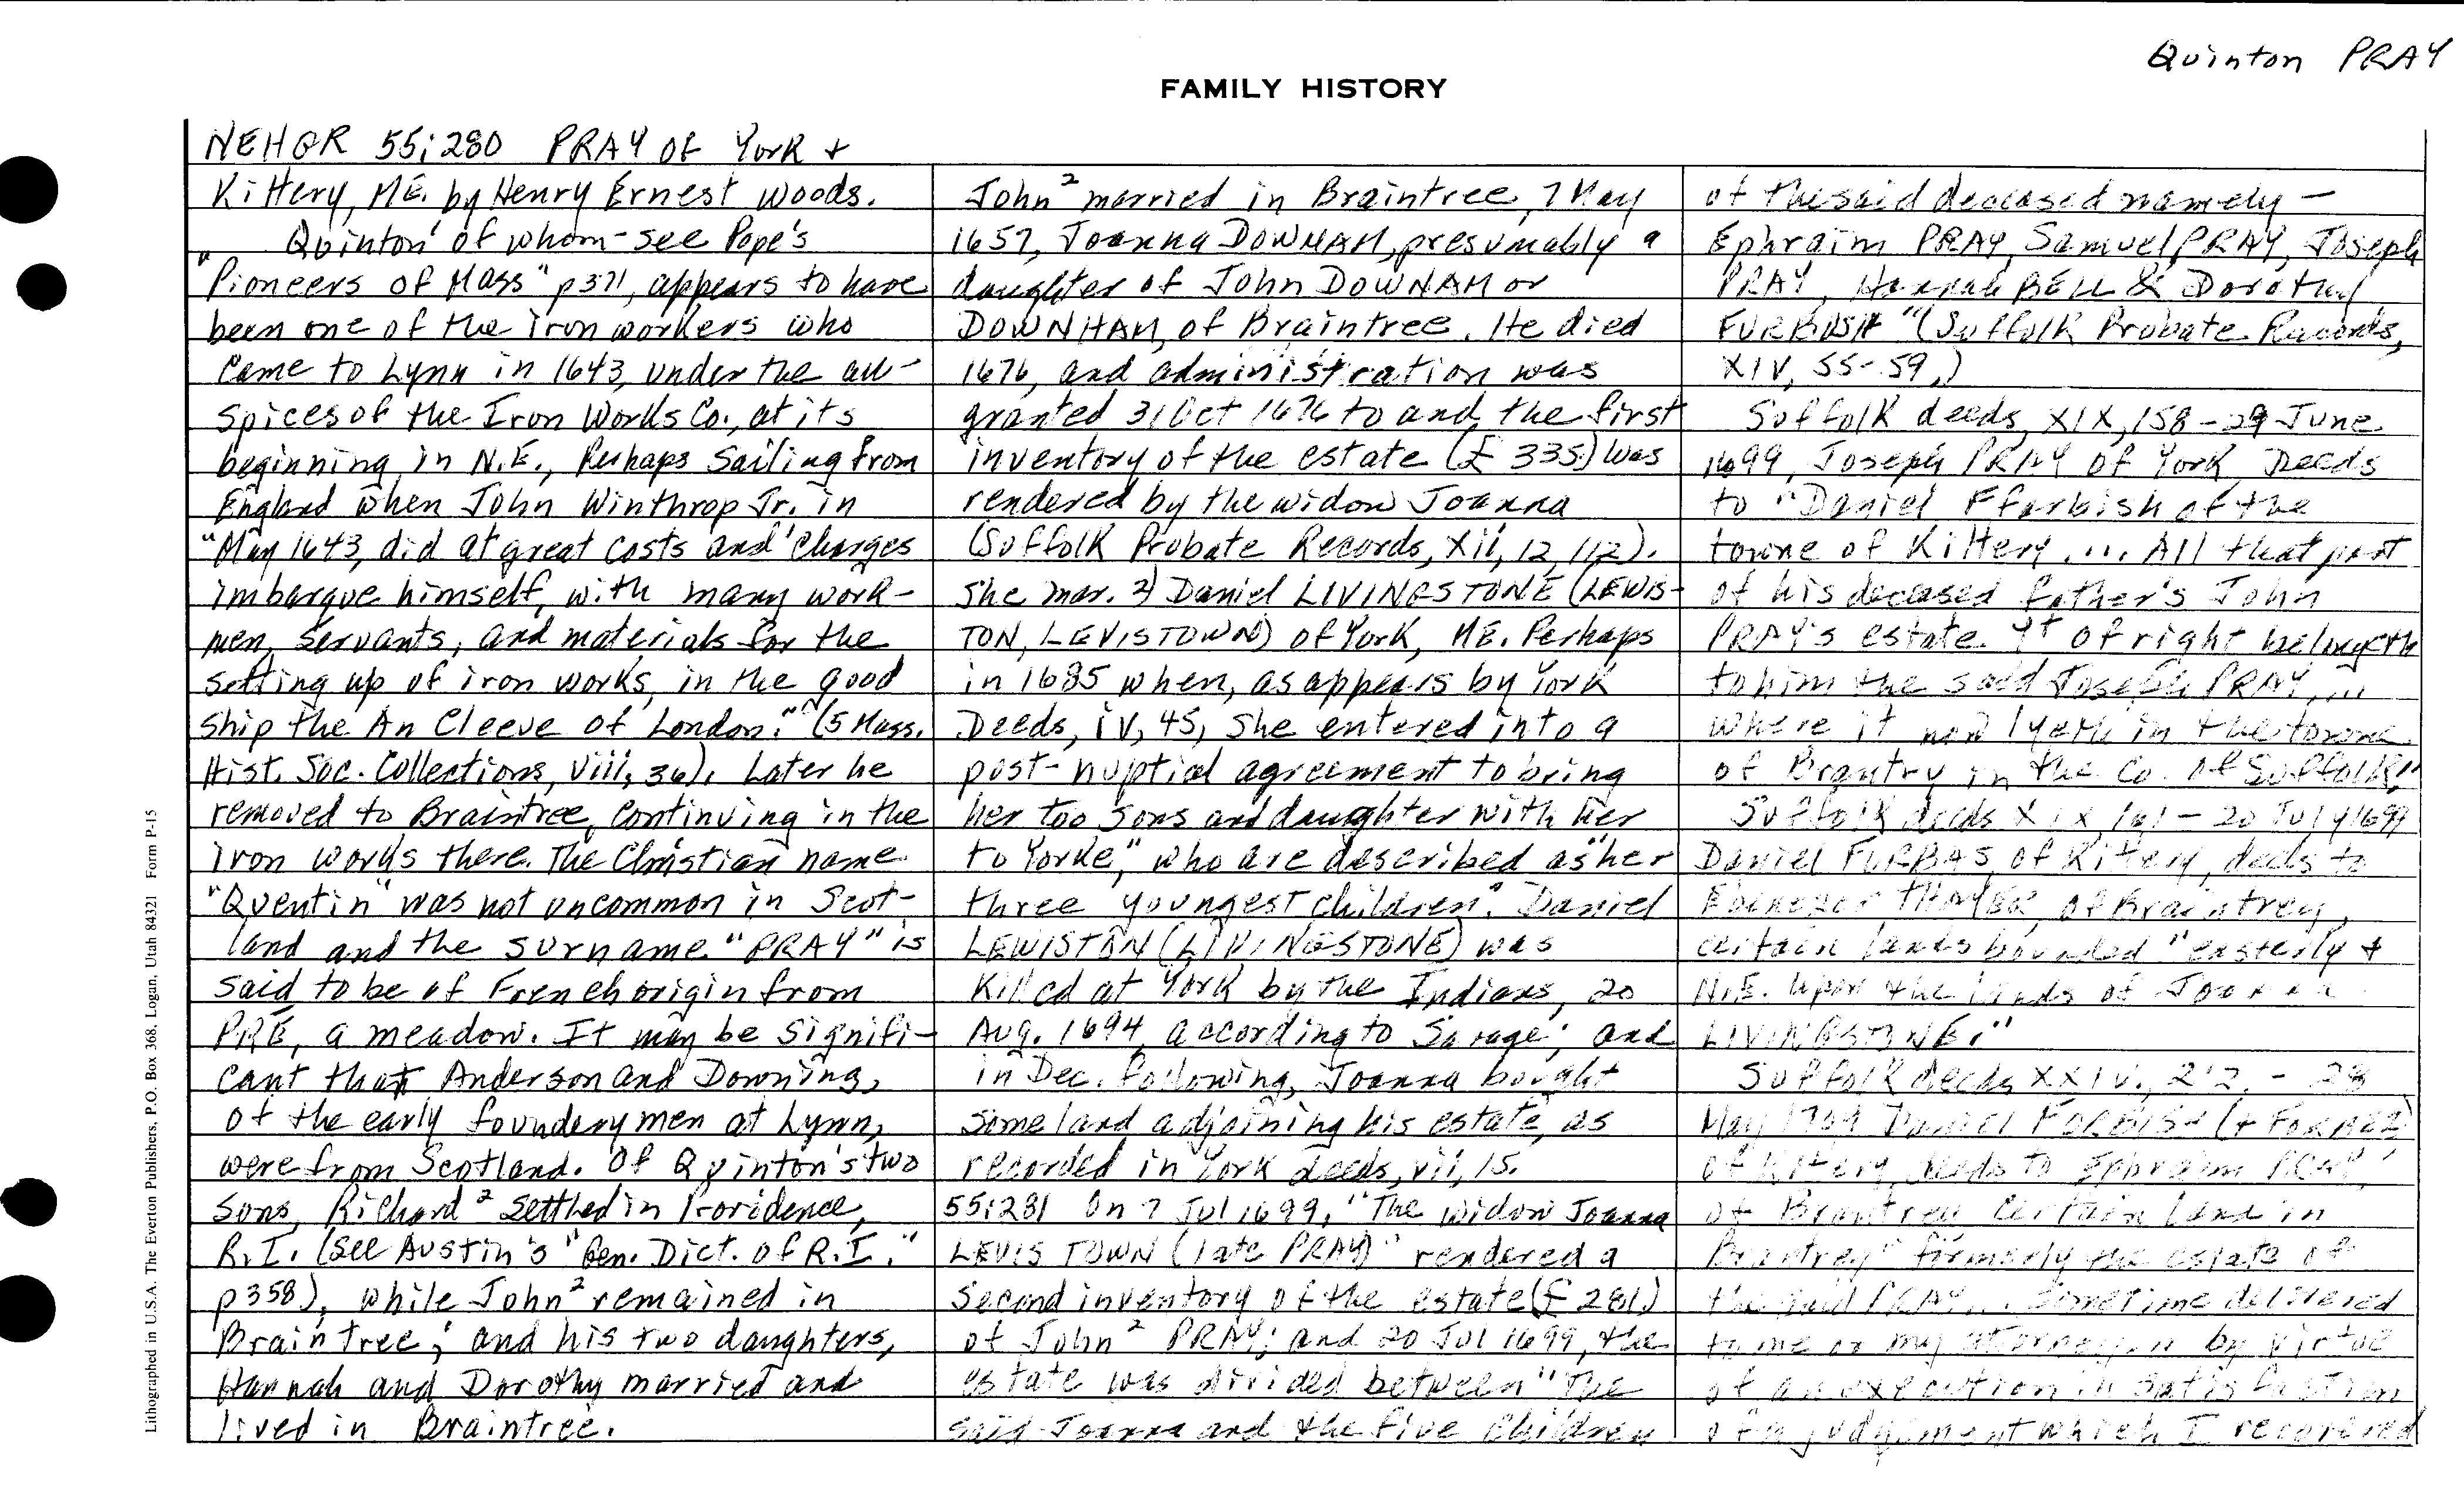 Quinton PRAY
FAMILY HISTORY
NEHGR 55:280 PRAY of York +
Kittery, ME. by Henry Ernest Woods.
Quinton' of whom - see Pope's
"Pioneers of Mass" p371, appears to have
been one of the iron workers who
came to Lynn in 1643, under the au-
spices of the Iron Works Co., at its
beginning in N.E., Perhaps Sailing from
England when John Winthrop Jr. in
"May 1643, did at great costs and charges
imbarque himself, with many work-
men, servants, and materials for the
setting up of iron works, in the good
ship the An Cleeve of London." (5 Mass.
Hist. Soc. Collections, viii, 36). Later he
removed to Braintree, continuing in the
iron works there. The Christian name
"Quentin" was not uncommon in Scot-
land and the surname "PRAY" is
said to be of French origin from
PRÉ, a meadow. It may be signifi-
cant that Anderson and Downing,
of the early foundery men at Lynn,
were from Scotland. Of Quinton's two
sons, Richard² settled in Providence,
R.I. (See Austin's "Gen. Dict. of R.I."
p358), while John² remained in
Braintree; and his two daughters,
Hannah and Dorothy married and
lived in Braintree.
John² married in Braintree, 7 May
1657, Joanna DOWNAM, presumably a
daughter of John DOWNAM or
DOWNHAM, of Braintree. He died
1676, and administration was
granted 31 Oct 1676 to and the first
inventory of the estate (£ 335.) was
rendered by the widow Joanna
(Suffolk Probate Records, xii, 12, 112).
She mar. 2) Daniel LIVINGSTONE (LEWIS-
TON, LEVISTOWN) of York, ME. Perhaps
in 1685 when, as appears by York
Deeds, iv, 45, she entered into a
post-nuptial agreement to bring
her too sons and daughter with her
to Yorke," who are described as "her
three youngest children". Daniel
LEWISTON (LIVINGSTONE) was
Killed at York by the Indians, 20
Aug. 1694, according to Savage; and
in Dec. following, Joanna bought
some land adjoining his estate, as
recorded in York Deeds, vii, 15.
55:281 On 7 Jul 1699, "The widow Joanna
LEVIS TOWN (late PRAY)" rendered a
second inventory of the estate (£ 281.)
of John² PRAY; and 20 Jul 1699, the
estate was divided between "The
said Joanna and the five children
of the said deceased namely -
Ephraim PRAY, Samuel PRAY, Joseph
PRAY, Hannah BELL & Dorothy
FURBISH" (Suffolk Probate Records,
XIV, 55-59,)
Suffolk deeds, XIX, 158 - 29 June
1699, Joseph PRAY of York Deeds
to "Daniel Ffurbish of the
towne of Kittery .... All that part
of his deceased father's John
PRAY's estate. yt of right belongeth
to him the said Joseph PRAY, ...
where it now lyeth in the towne
of Brantry in the Co. of Suffolk."
Suffolk deeds XIX 161 - 20 July 1699
Daniel FURBAS, of Kittery, deeds to
Ebenezer THAYER, of Braintrey,
certain lands bounded "easterly +
N.E. upon the lands of Joanna
LIVINGSTONE."
Suffolk deeds XXIV., 212 - 28
May 1709 Daniel FORBISH
of Kittery, deeds to Ephraim PRAY,
of Brantrey certain land in
Brantrey "formerly the estate of
the said PRAY... sometime delivered
to me or my attorney by virtue
of an execution in satisfaction
of a judgement which I recovered
Lithographed in U.S.A. The Everton Publishers, P.O. Box 368, Logan, Utah 84321 Form P-15